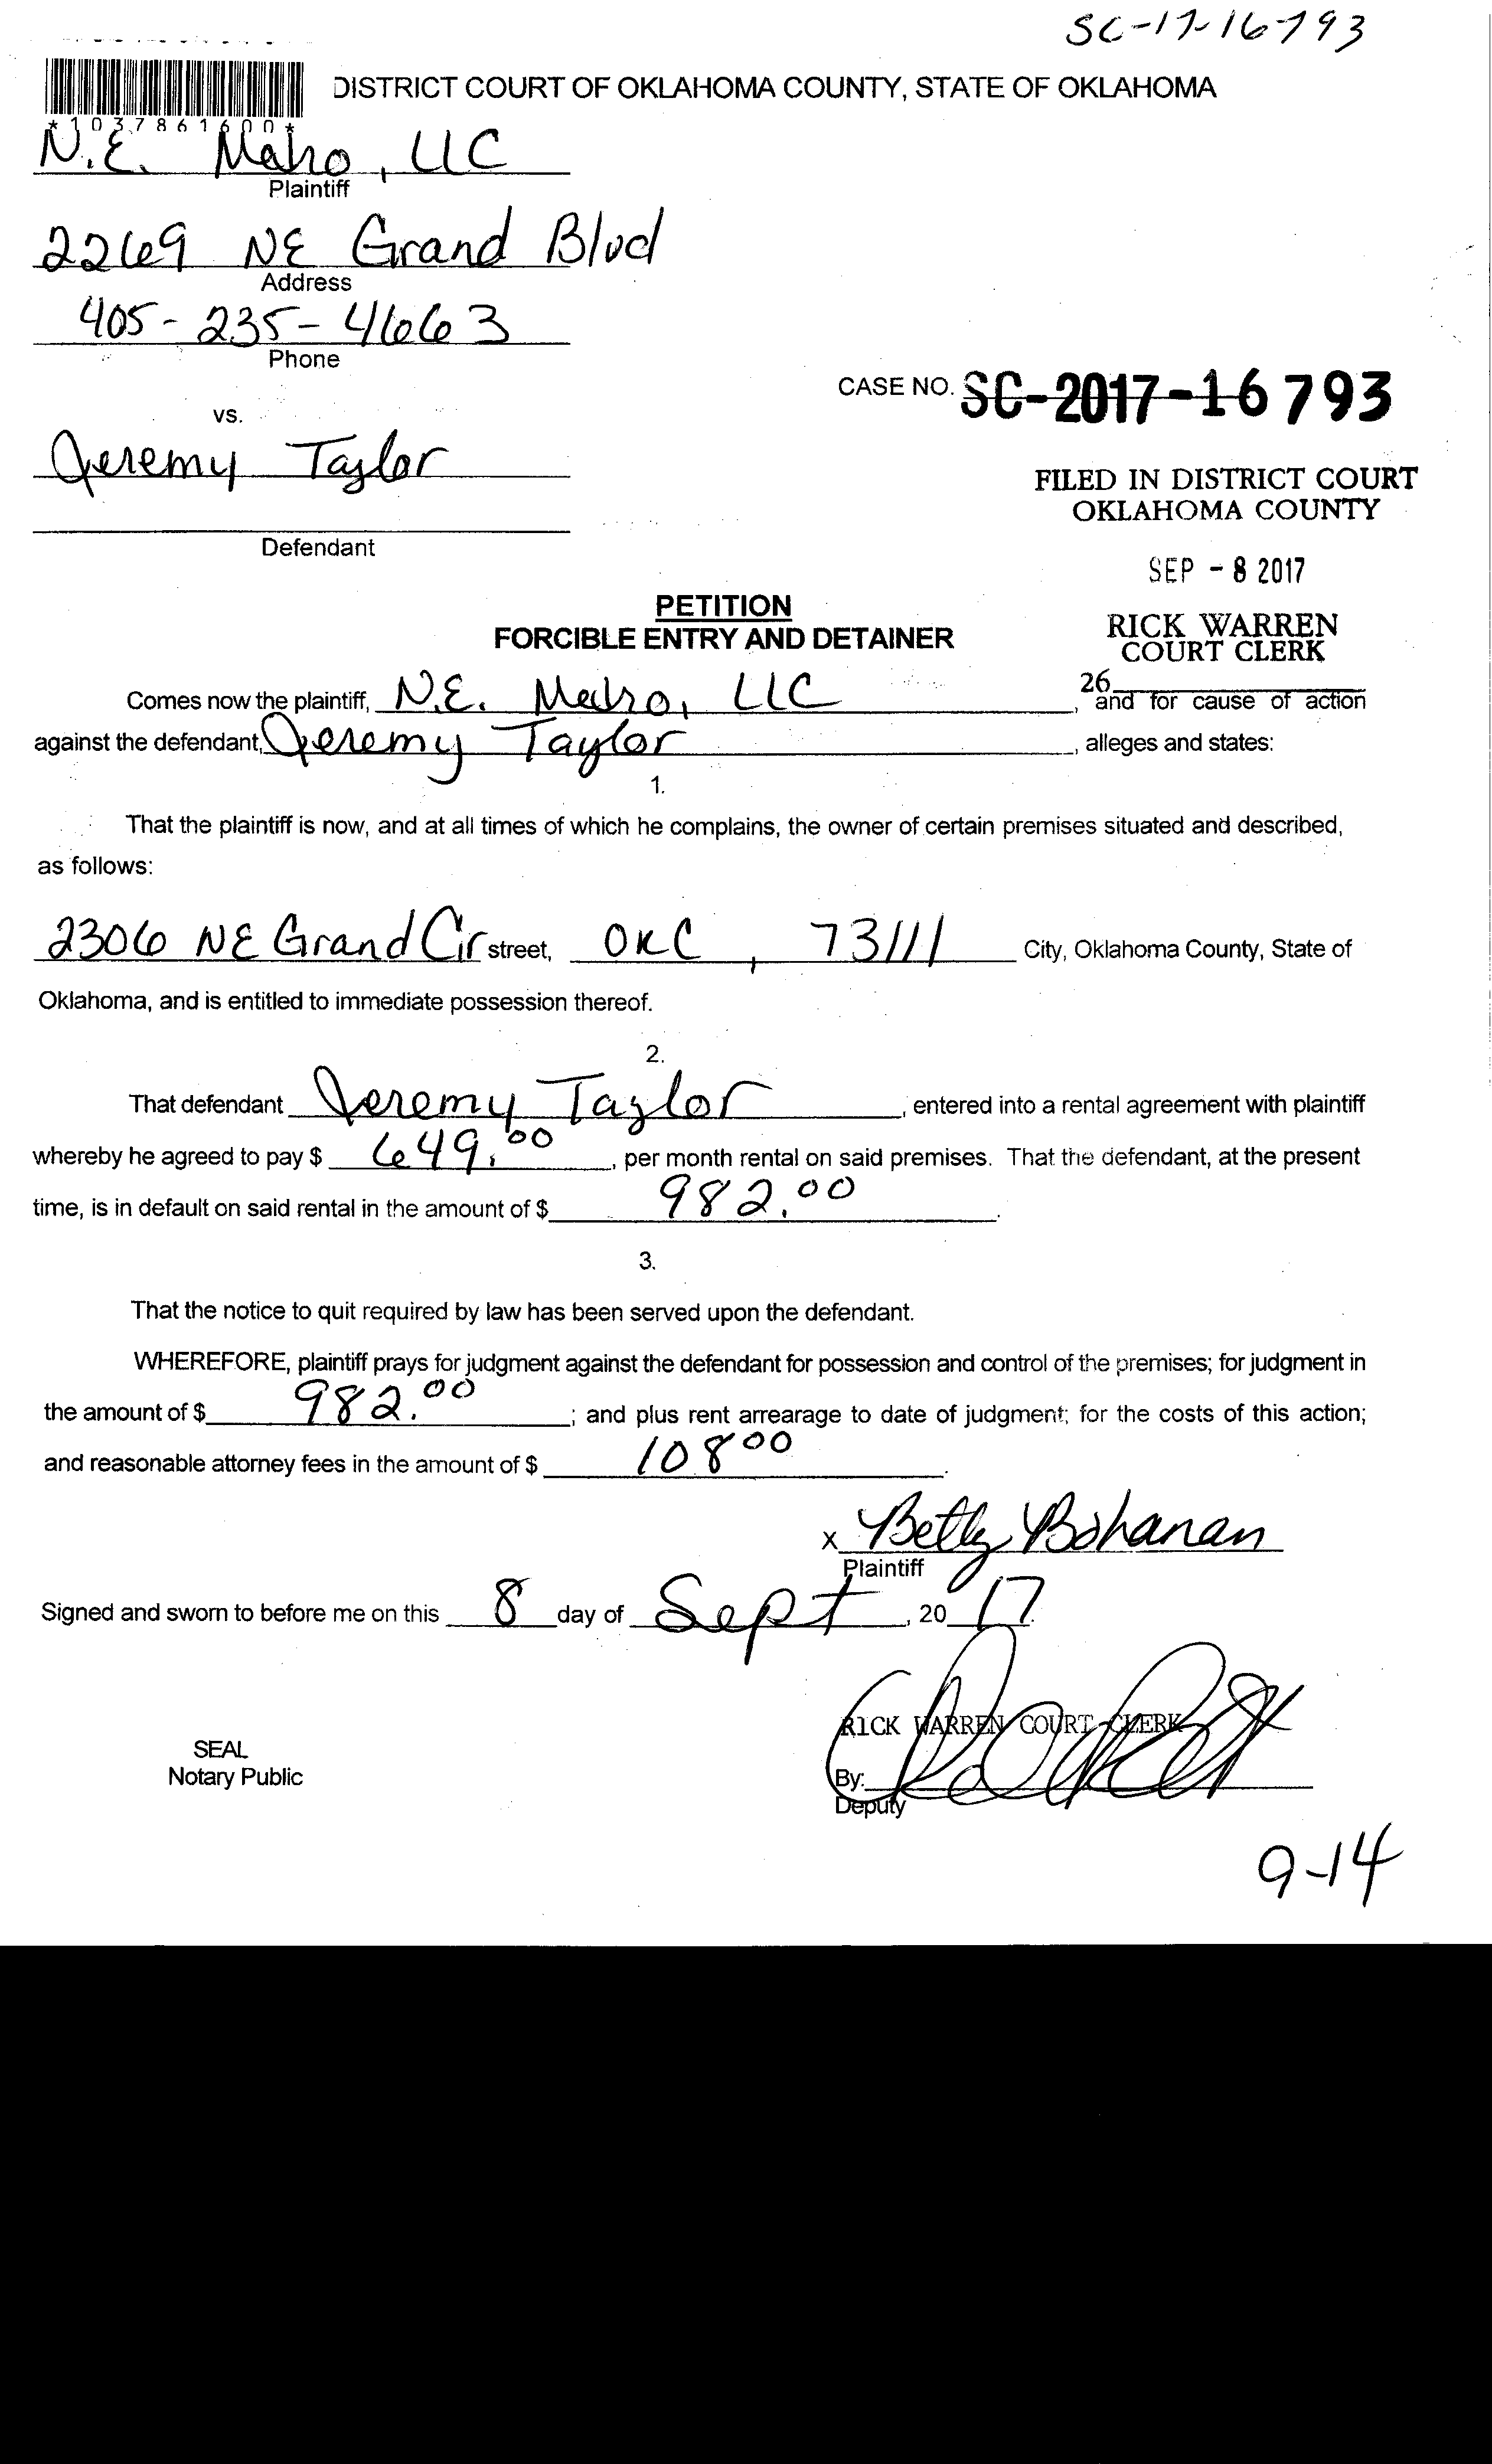 SC-17-16793
DISTRICT COURT OF OKLAHOMA COUNTY, STATE OF OKLAHOMA
*1037861600*
N.E. Metro, LLC
Plaintiff
2269 NE Grand Blvd
Address
405-235-4663
Phone
CASE NO. SC-2017-16793
vs.
Jeremy Taylor
FILED IN DISTRICT COURT
OKLAHOMA COUNTY
Defendant
SEP - 8 2017
PETITION
FORCIBLE ENTRY AND DETAINER
RICK WARREN
COURT CLERK
26
Comes now the plaintiff, N.E. Metro, LLC, and for cause of action
against the defendant, Jeremy Taylor, alleges and states:
1.
That the plaintiff is now, and at all times of which he complains, the owner of certain premises situated and described,
as follows:
2306 NE Grand Cir street, OKC, 73111 City, Oklahoma County, State of
Oklahoma, and is entitled to immediate possession thereof.
2.
That defendant Jeremy Taylor, entered into a rental agreement with plaintiff
whereby he agreed to pay $ 649.00, per month rental on said premises. That the defendant, at the present
time, is in default on said rental in the amount of $ 982.00.
3.
That the notice to quit required by law has been served upon the defendant.
WHEREFORE, plaintiff prays for judgment against the defendant for possession and control of the premises; for judgment in
the amount of $ 982.00; and plus rent arrearage to date of judgment; for the costs of this action;
and reasonable attorney fees in the amount of $ 108 00.
x Betty Bohanan
Plaintiff
Signed and sworn to before me on this 8 day of Sept, 20 17.
RICK WARREN COURT CLERK
SEAL
Notary Public
By:
Deputy
9-14